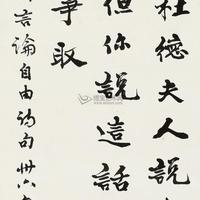 杜德夫人說
但你說這話
爭取
言論自由的句卅六